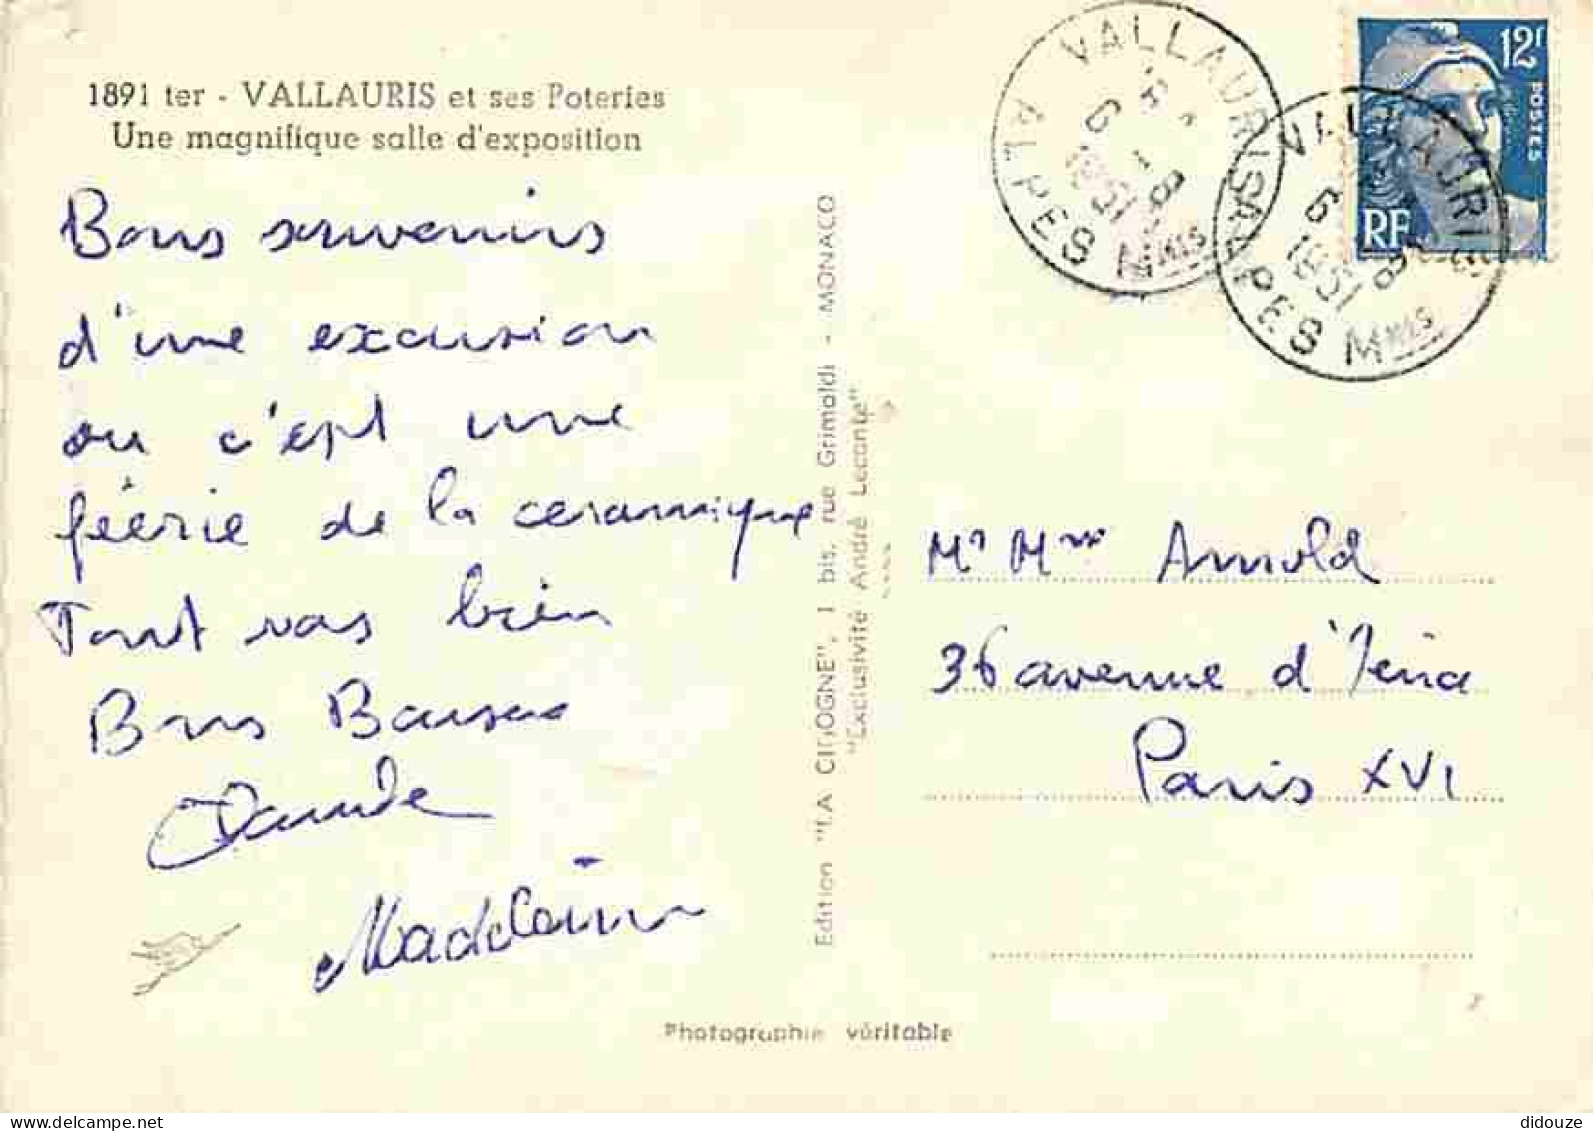 1891 ter - VALLAURIS et ses Poteries
Une magnifique salle d'exposition
Bons souvenirs
d'une excursion
ou c'est une
féerie de la ceramique
Tout vas bien
Bons Baisers
Claude
Madeleine
Edition "LA CIGOGNE", 1 bis, rue Grimaldi - MONACO
"Exclusivité André Leconte"
Photographie véritable
VALLAURIS
ALPES MMES
6 - 8
1951
VALLAURIS
ALPES MMES
6 8
1951
12F
POSTES
RF
Mr Mme Arnold
36 avenue d'Iéna
Paris XVI
didouze